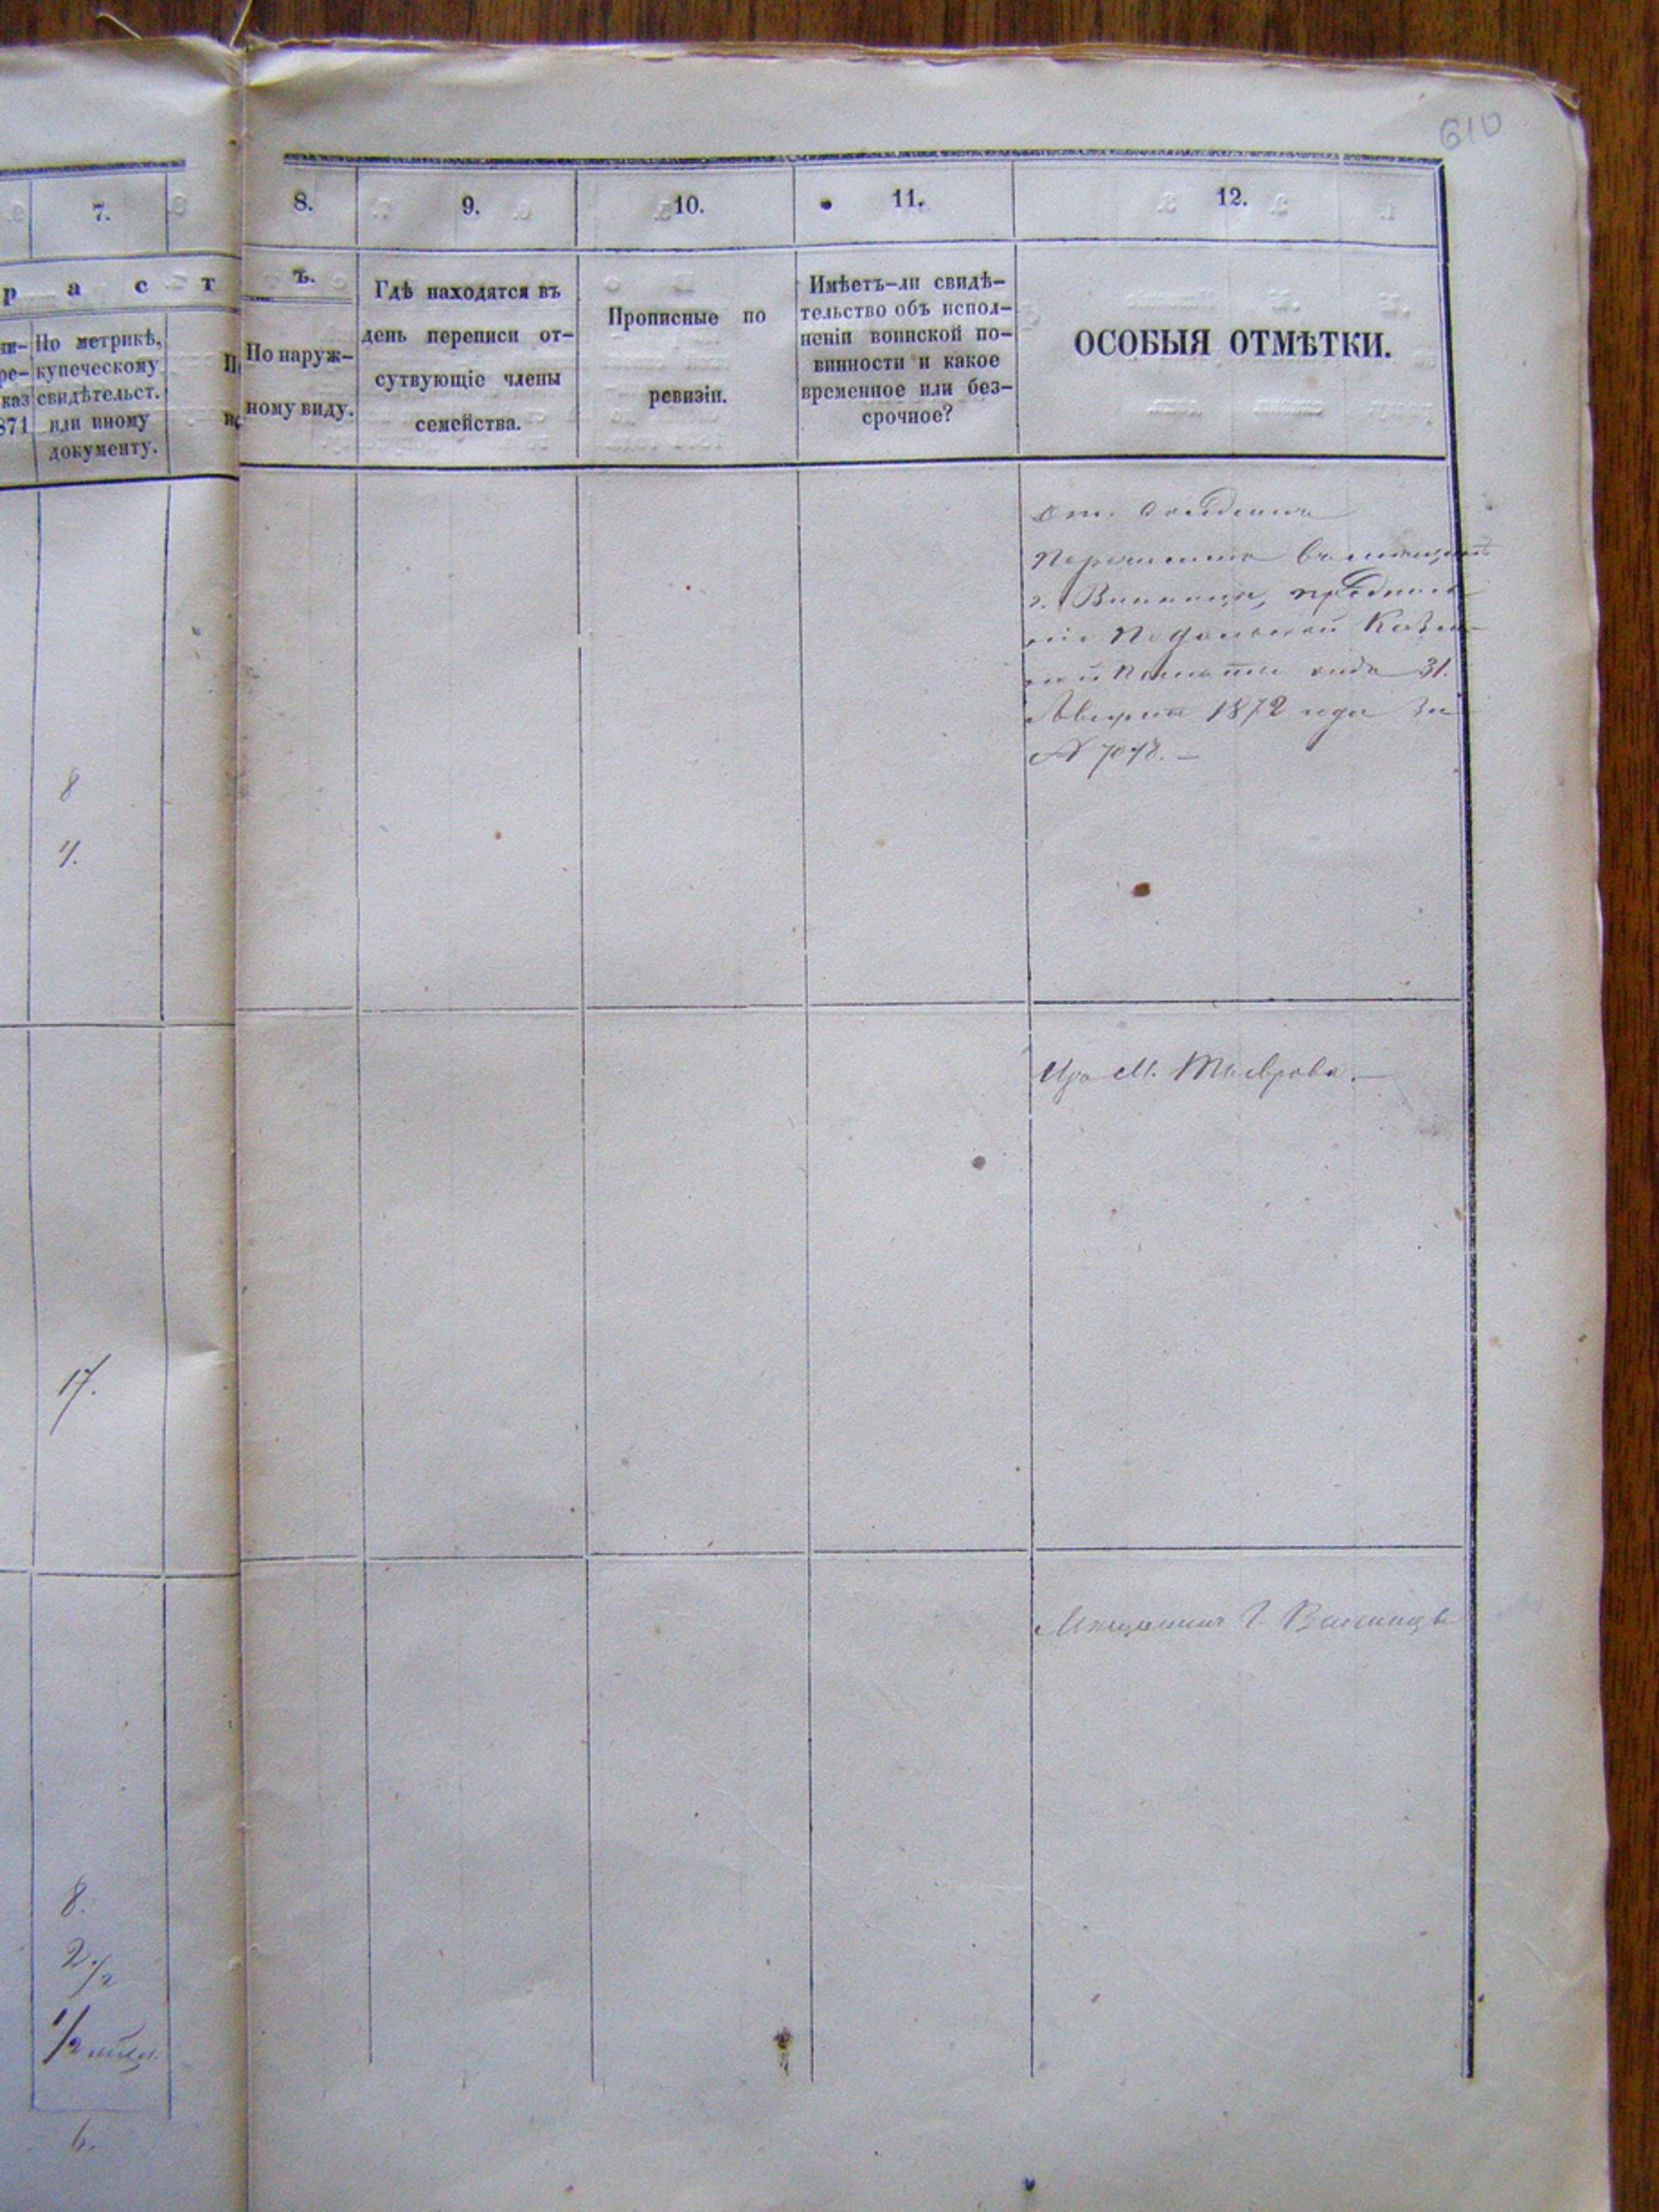 610
7.
8.
9.
10.
11.
12.
р а с т
ъ.
По метрикѣ,
купеческому
свидѣтельст.
или иному
документу.
871
По наруж-
ному виду.
Гдѣ находятся въ
день переписи от-
сутвующіе члены
семейства.
Прописные по
ревизіи.
Имѣетъ-ли свидѣ-
тельство объ испол-
неніи воинской по-
винности и какое
временное или без-
срочное?
ОСОБЫЯ ОТМѢТКИ.
г. Винницы,
Подольской Казен-
ной Палаты 31.
Августа 1872 года За
№
8
4.
Изъ М. Тыврова.
17.
Мѣщанинъ г. Винницы
8.
2 1/2
1/2
6.